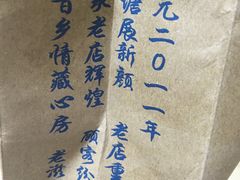 元二〇一一年
塘展新颜 老店重
老店辉煌 顾客纷
乡情藏心房 老滋